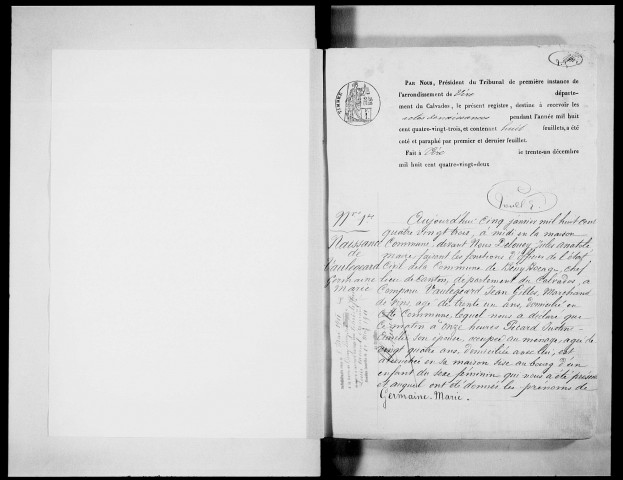 Par Nous, Président du Tribunal de première instance de
l'arrondissement de Vire départe-
ment du Calvados, le présent registre, destiné à recevoir les
actes de naissances pendant l'année mil huit
cent quatre-vingt-trois, et contenant huit feuillets, a été
coté et paraphé par premier et dernier feuillet.
Fait à Vire le trente-un décembre
mil huit cent quatre-vingt-deux
TIMBRE
Nº 1er
Naissance
de
Vaulegeard
Germaine
Marie
Aujourd'hui cinq janvier mil huit cent
quatre vingt trois, à midi, en la maison
Commune, devant Nous Delouey Jules Anatole
maire, faisant les fonctions d'officier de l'état
Civil de la Commune de Bény Bocage, chef
lieu de Canton, département du Calvados, a
Comparu Vaulegeard Jean Gilles, Marchand
de vins, âgé de trente un ans, domicilié en
cette Commune, lequel nous a déclaré que
ce matin à onze heures Picard Justine
Emilie son épouse, occupée au ménage, agée de
vingt quatre ans, domiciliée avec lui, est
accouchée en sa maison sise au bourg d'un
enfant du sexe féminin qui nous a été présenté
et auquel ont été donnés les prénoms de
Germaine Marie.